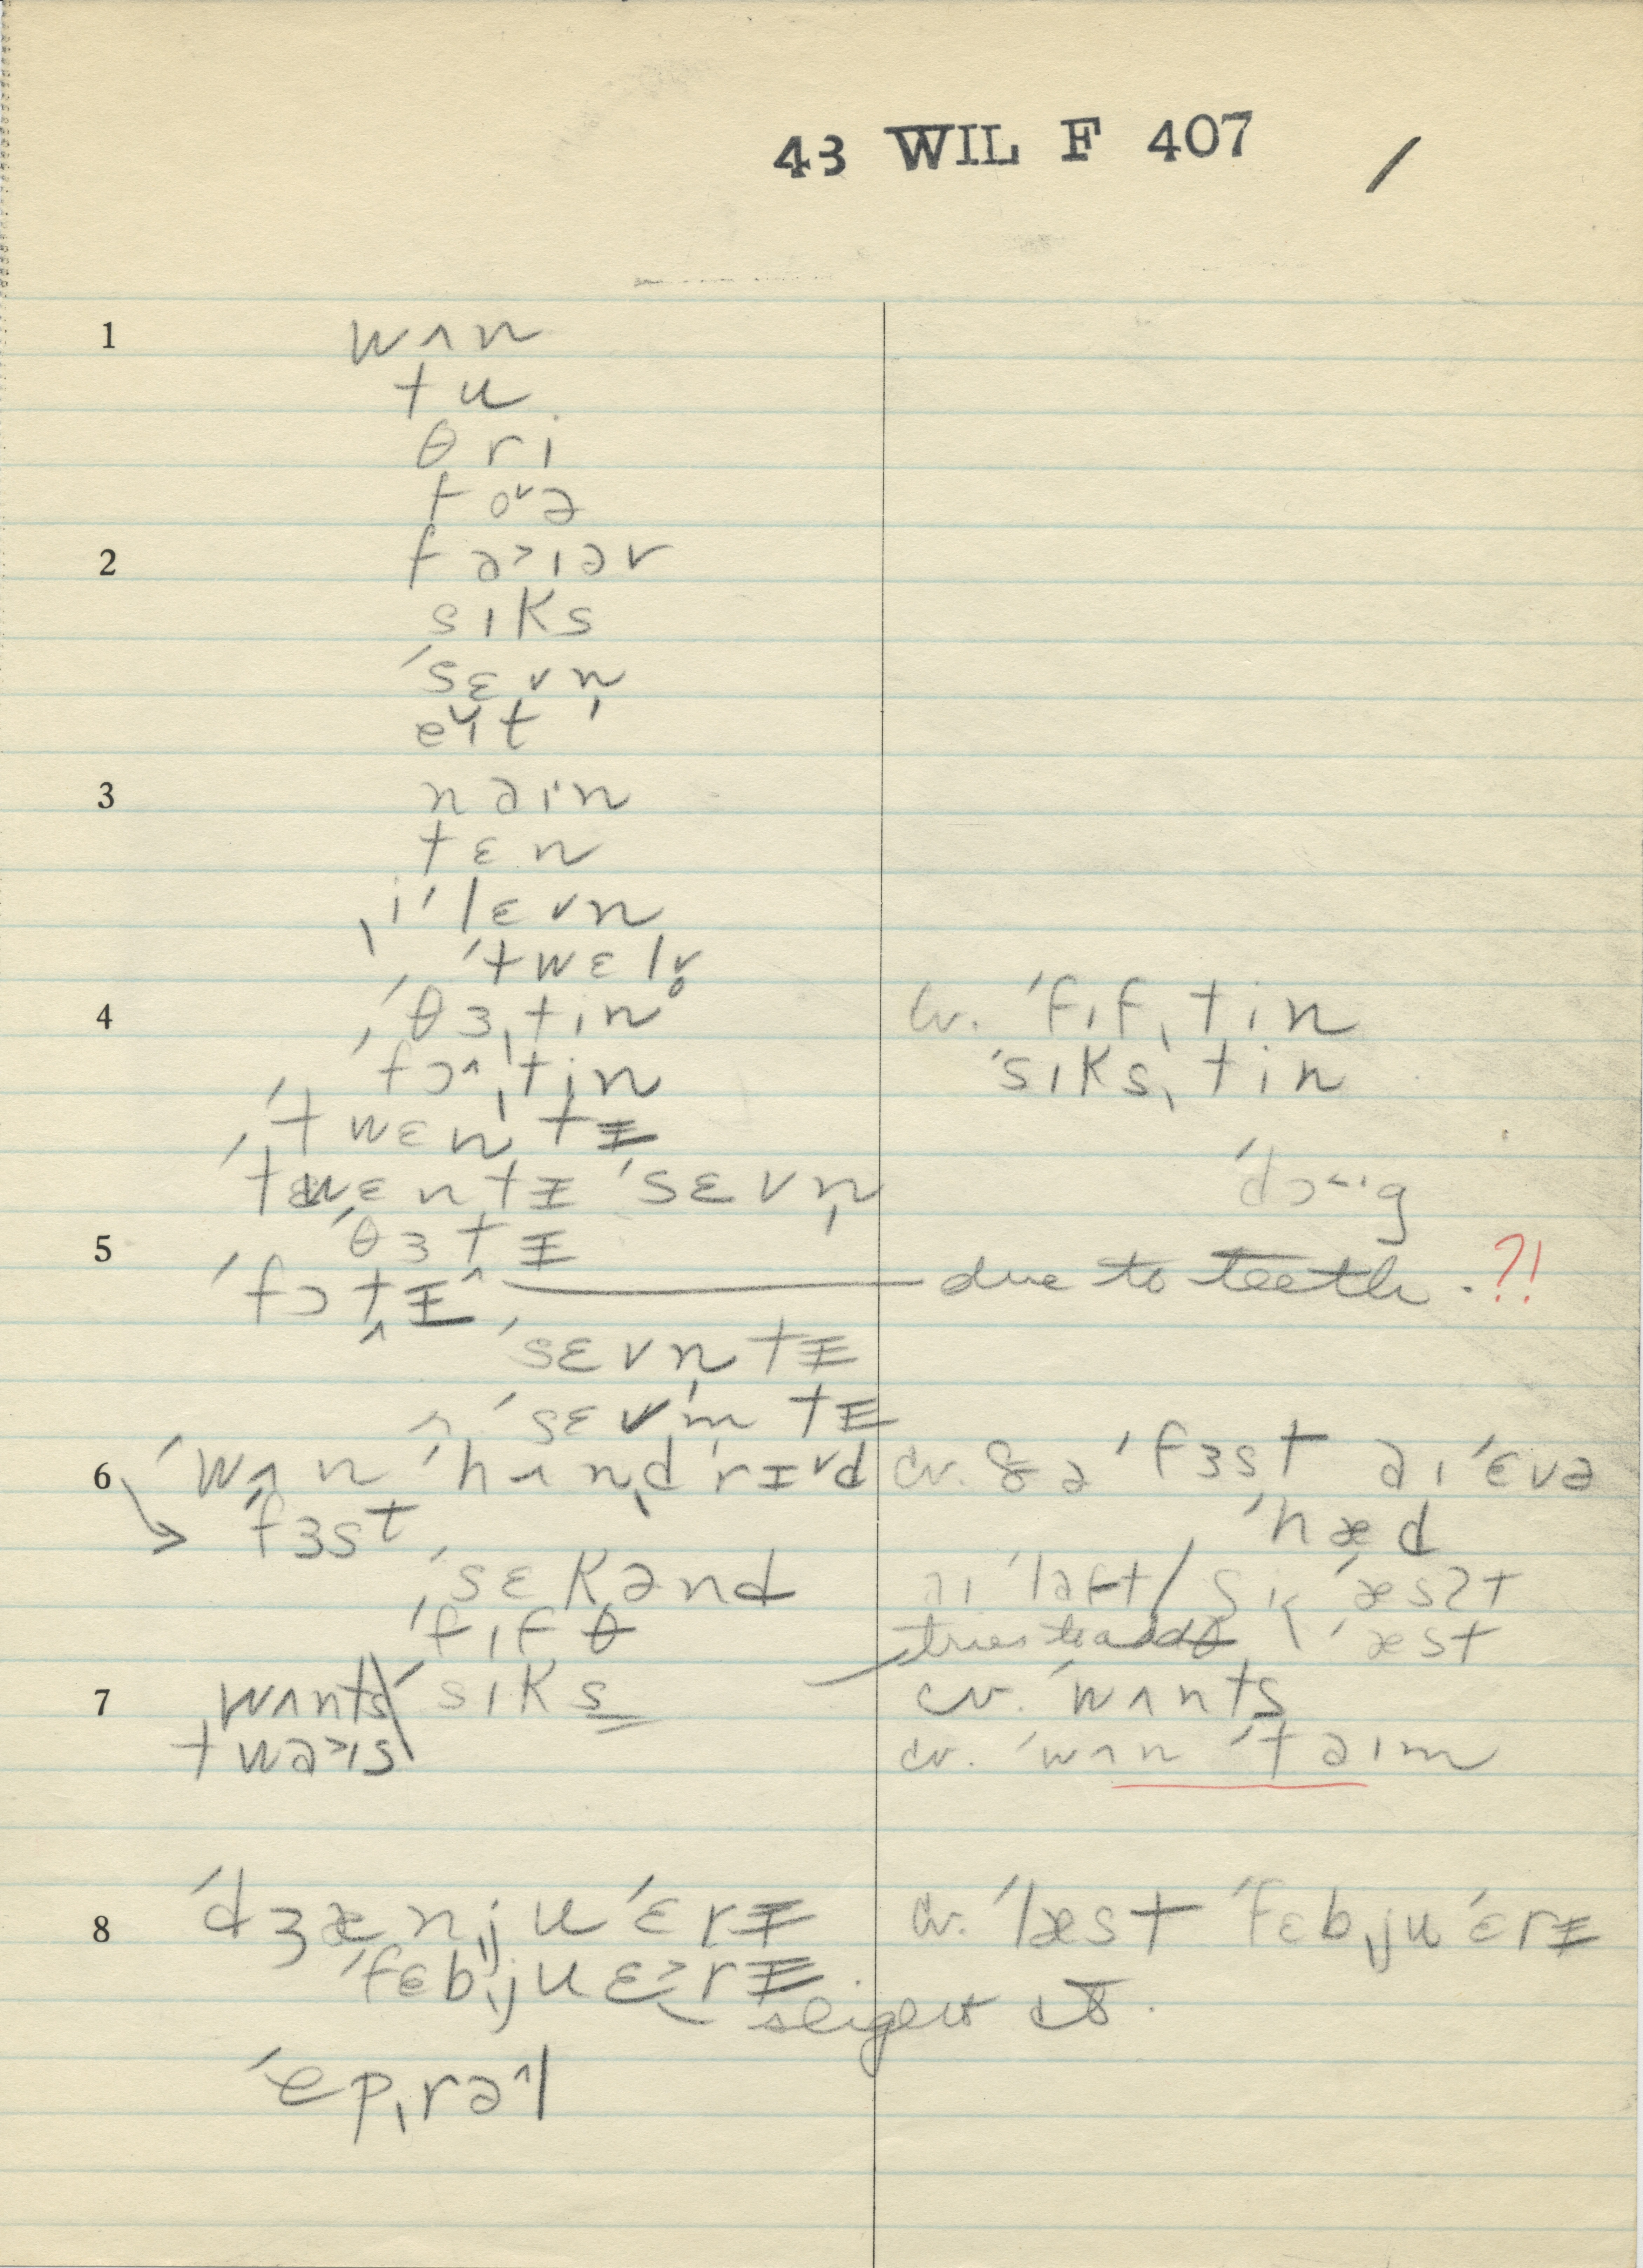 43 WIL F 407 /
1 wʌn
tu
θri
foᵛə
2 fə˃ɪəv
sɪks
ˈsɛvn̩
eᵛɪt
3 nəɪn
tɛn
ˌiˈlɛvn̩
ˈtwɛlv̥
4 ˈθɜˌtin cv. ˈfɪfˌtin
ˈfɔ^ˌtin ˈsɪksˌtin
ˈtwɛnˌtɪ
ˈtwɛntɪ ˈsɛvn̩
5 ˈθɜtɪ
ˈfɔtɪ^ due to teeth. ?!
ˈsɛvn̩tɪ
ˈsɛvm̩tɪ
6 ˈwʌn ˈhʌnˌdrɪᵛd cv. ðə ˈfɜst əɪ ˈɛvə
ˈfɜst ˈhæd
ˈsɛkənd
ˈfɪfθ
7 wʌnts ˈsɪks cv. ˈwʌnts
twə˃ɪs cv. ˈwʌn ˈtəɪm
8 ˈdʒænˌjuˈɛrɪ cv. ˈlæst ˈfɛbˌjuˈɛrɪ
ˈfɛbˌjuɛ˃rɪ
slight
ˈepˌrə^l